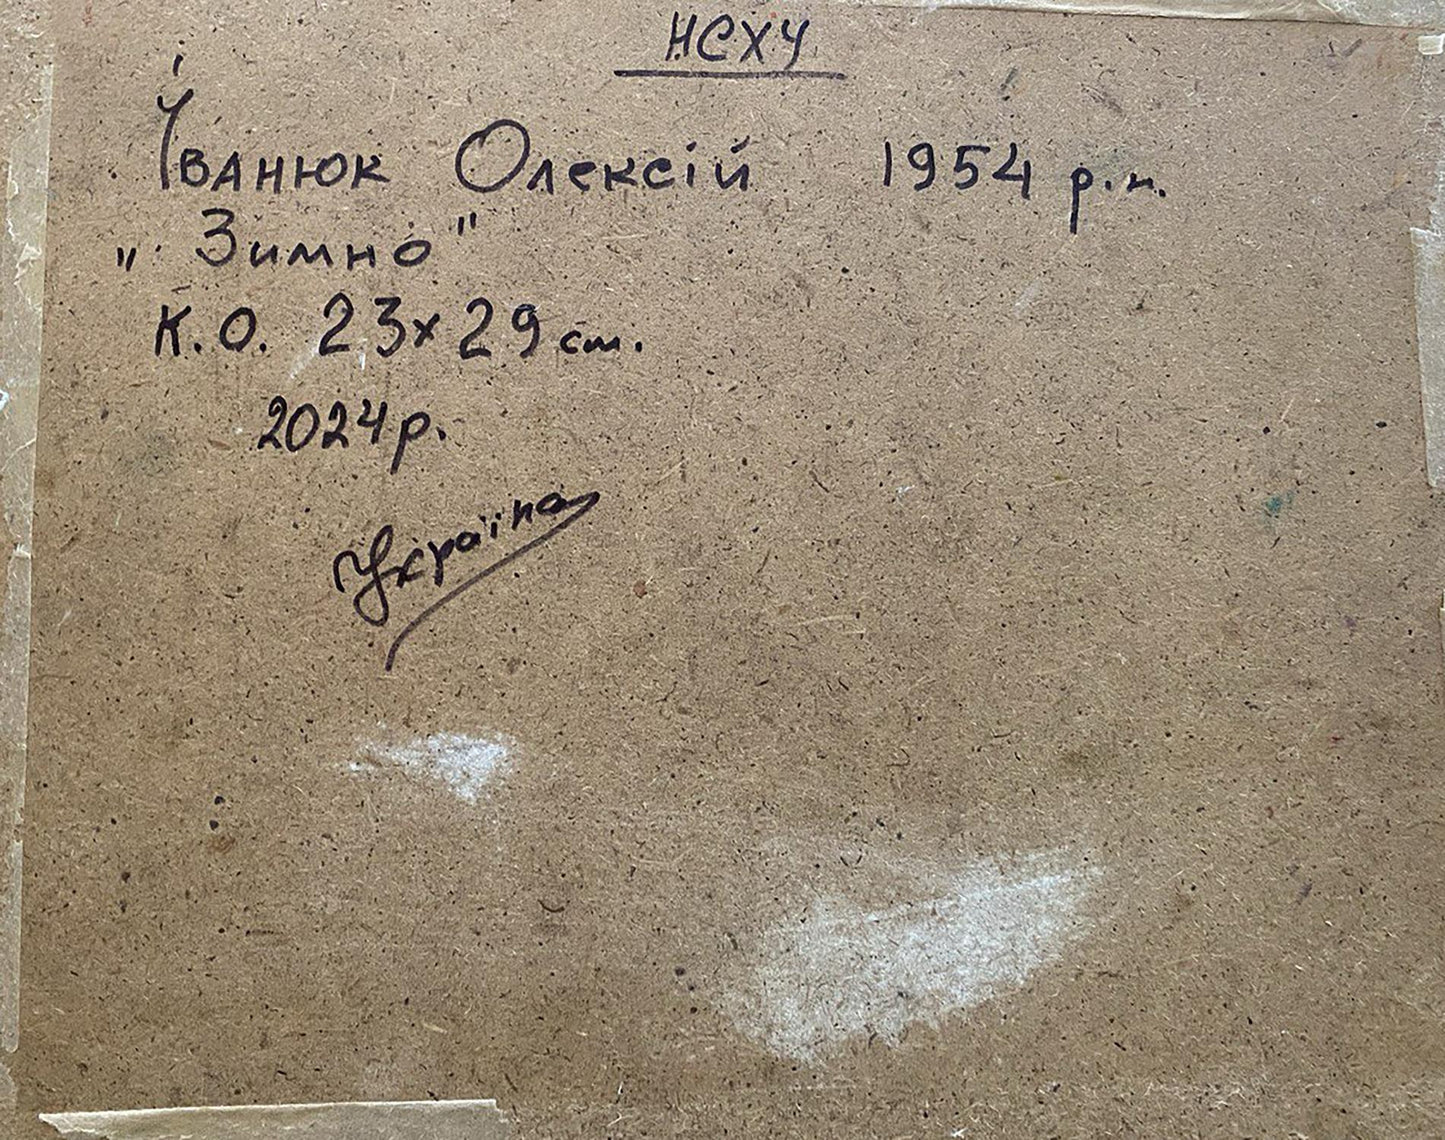 НСХУ
Іванюк Олексій 1954 р.н.
„Зимно"
К.О. 23х29 см.
2024 р.
Україна